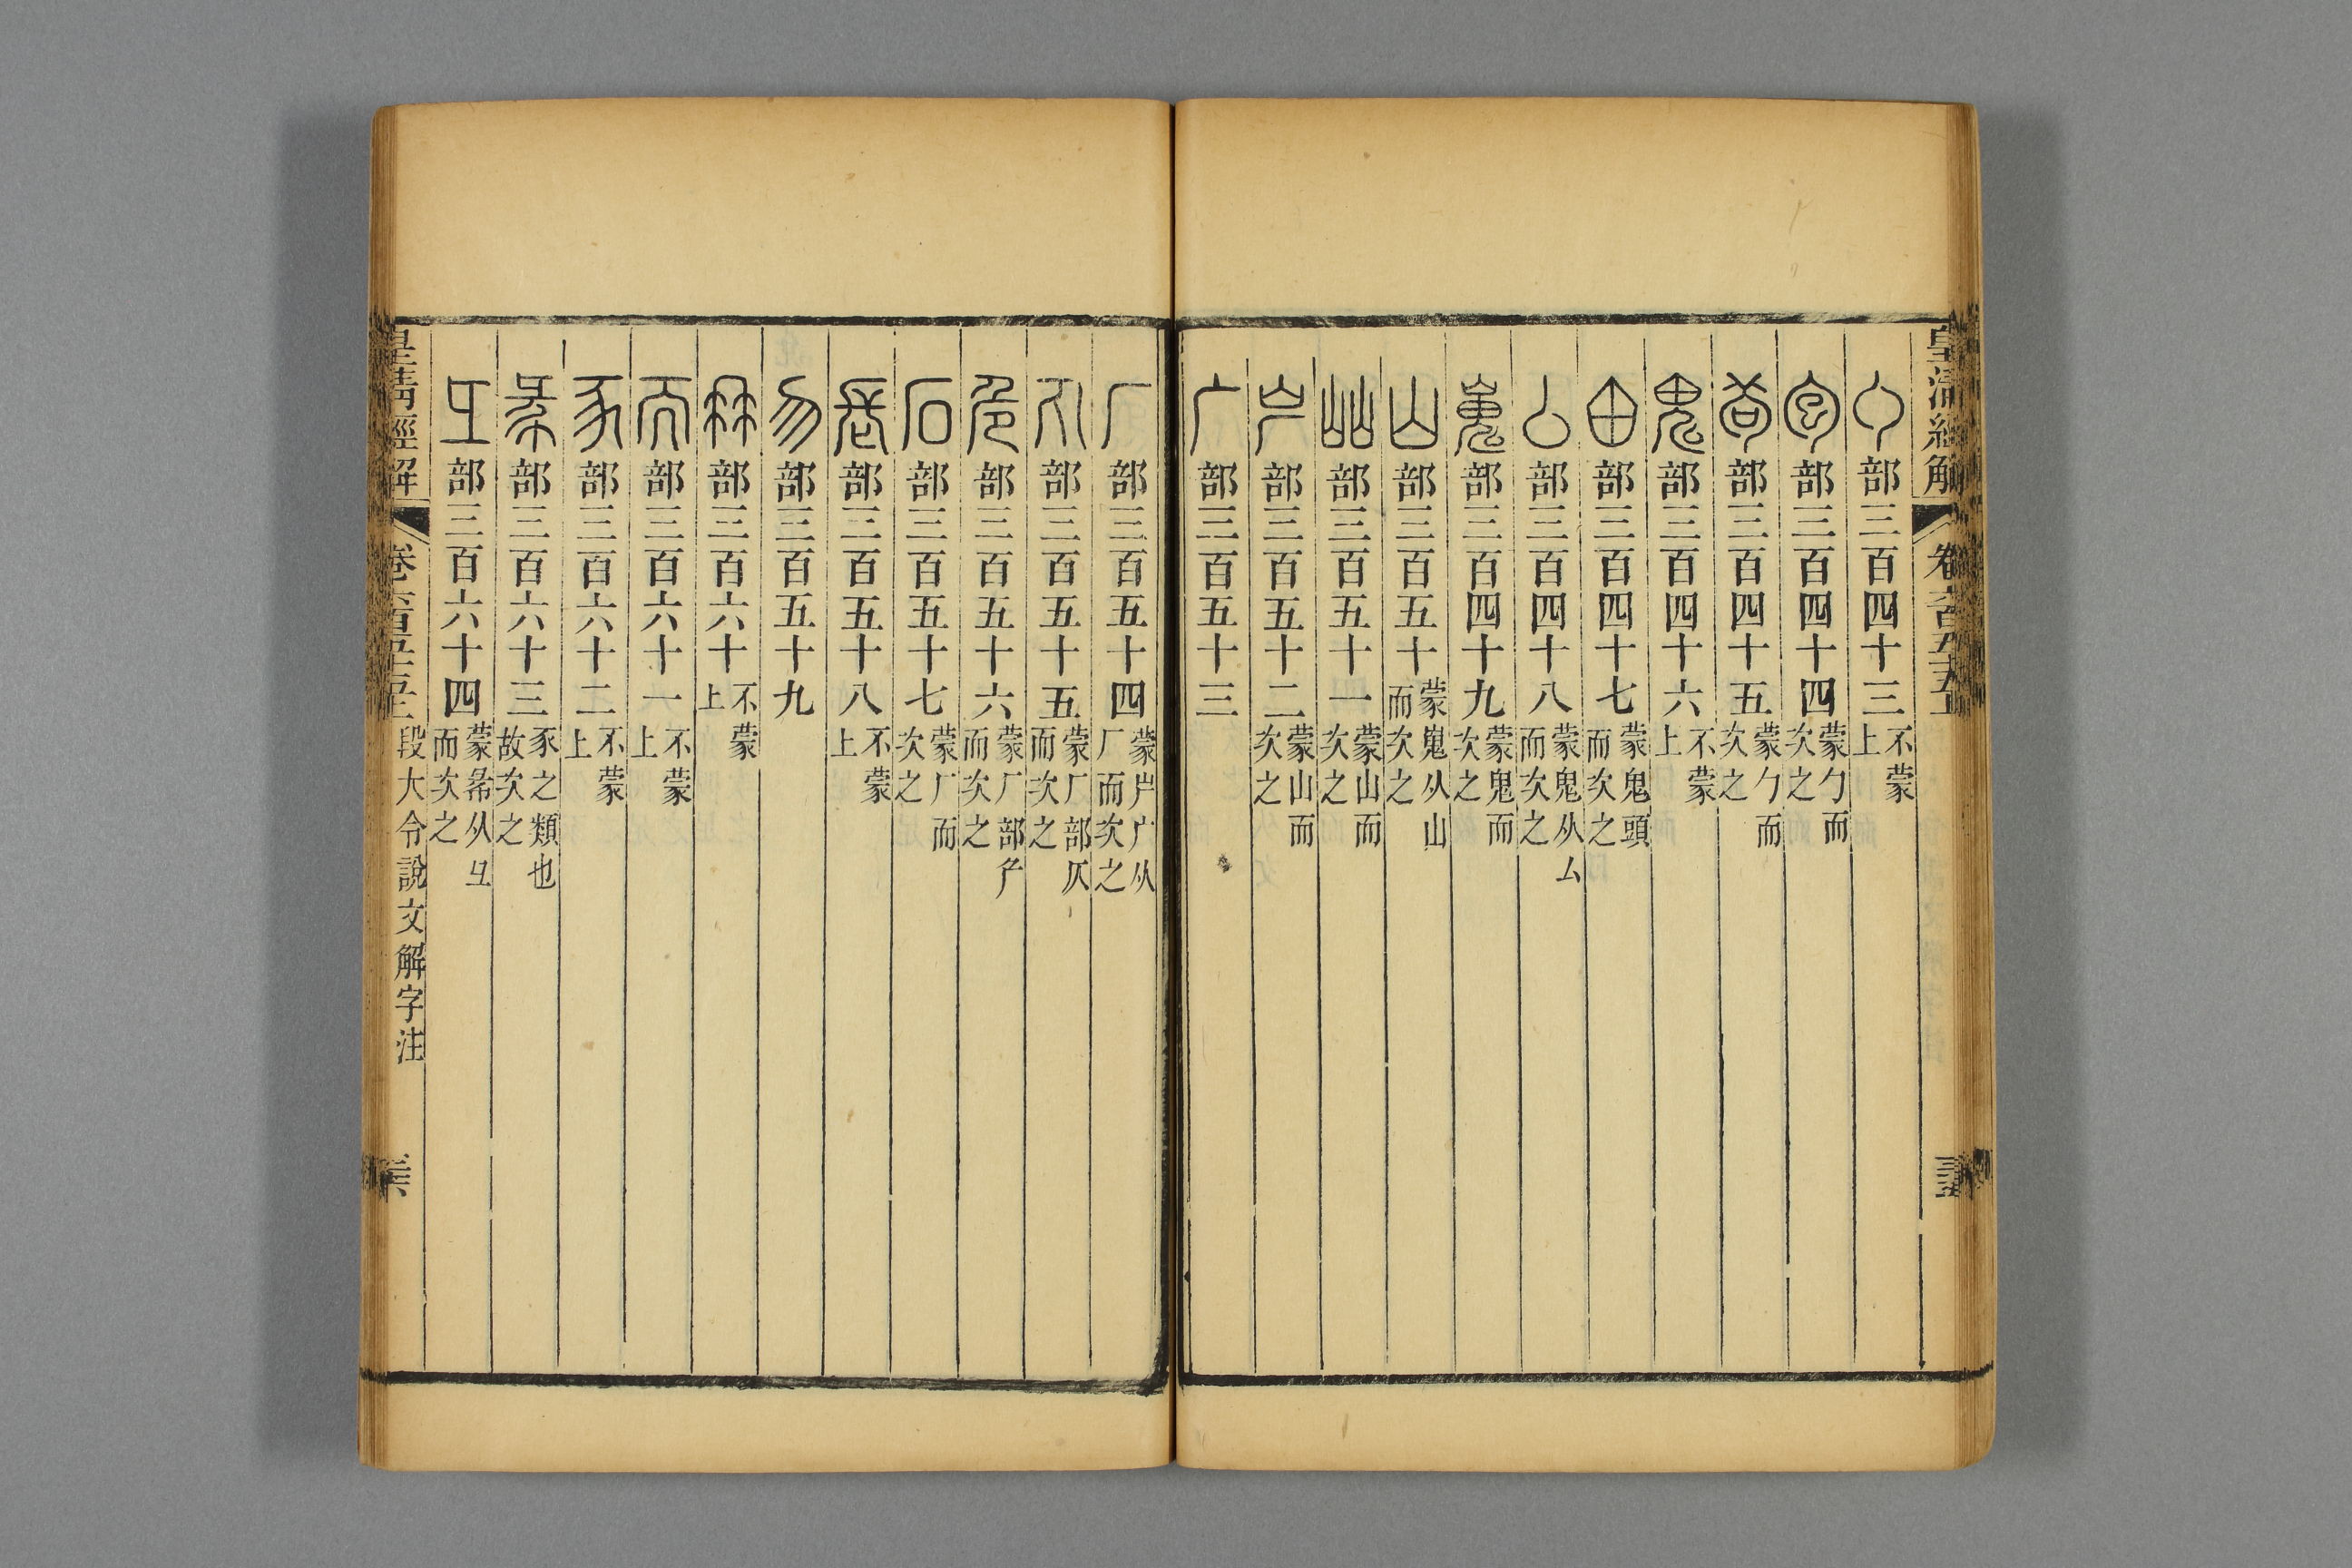 皇清經解 卷六百五十五
勹部三百四十三 不蒙上
包部三百四十四 蒙勹而次之
茍部三百四十五 蒙勹而次之
鬼部三百四十六 不蒙上
甶部三百四十七 蒙鬼頭而次之
厶部三百四十八 蒙鬼从厶而次之
嵬部三百四十九 蒙鬼而次之
山部三百五十 蒙嵬从山而次之
屾部三百五十一 蒙山而次之
屵部三百五十二 蒙山而次之
广部三百五十三
厂部三百五十四 蒙屵广从厂而次之
丸部三百五十五 蒙厂部仄而次之
危部三百五十六 蒙厂部厃而次之
石部三百五十七 蒙厂而次之
長部三百五十八 不蒙上
勿部三百五十九
冄部三百六十 不蒙上
而部三百六十一 不蒙上
豕部三百六十二 不蒙上
㣇部三百六十三 豕之類也故次之
彑部三百六十四 蒙㣇从彑而次之
皇清經解 卷六百五十五 段大令說文解字注